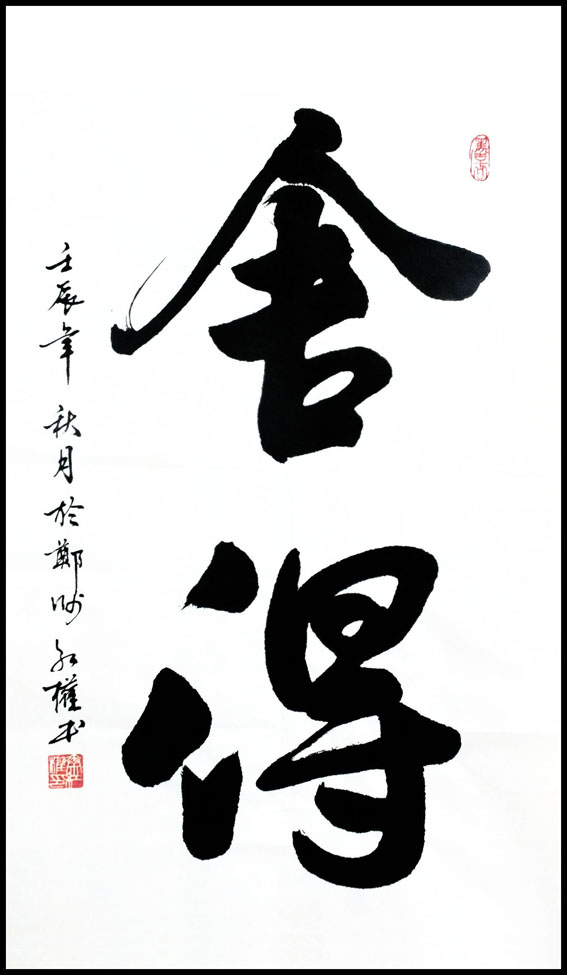 舍得
壬辰年秋月於鄭州權书